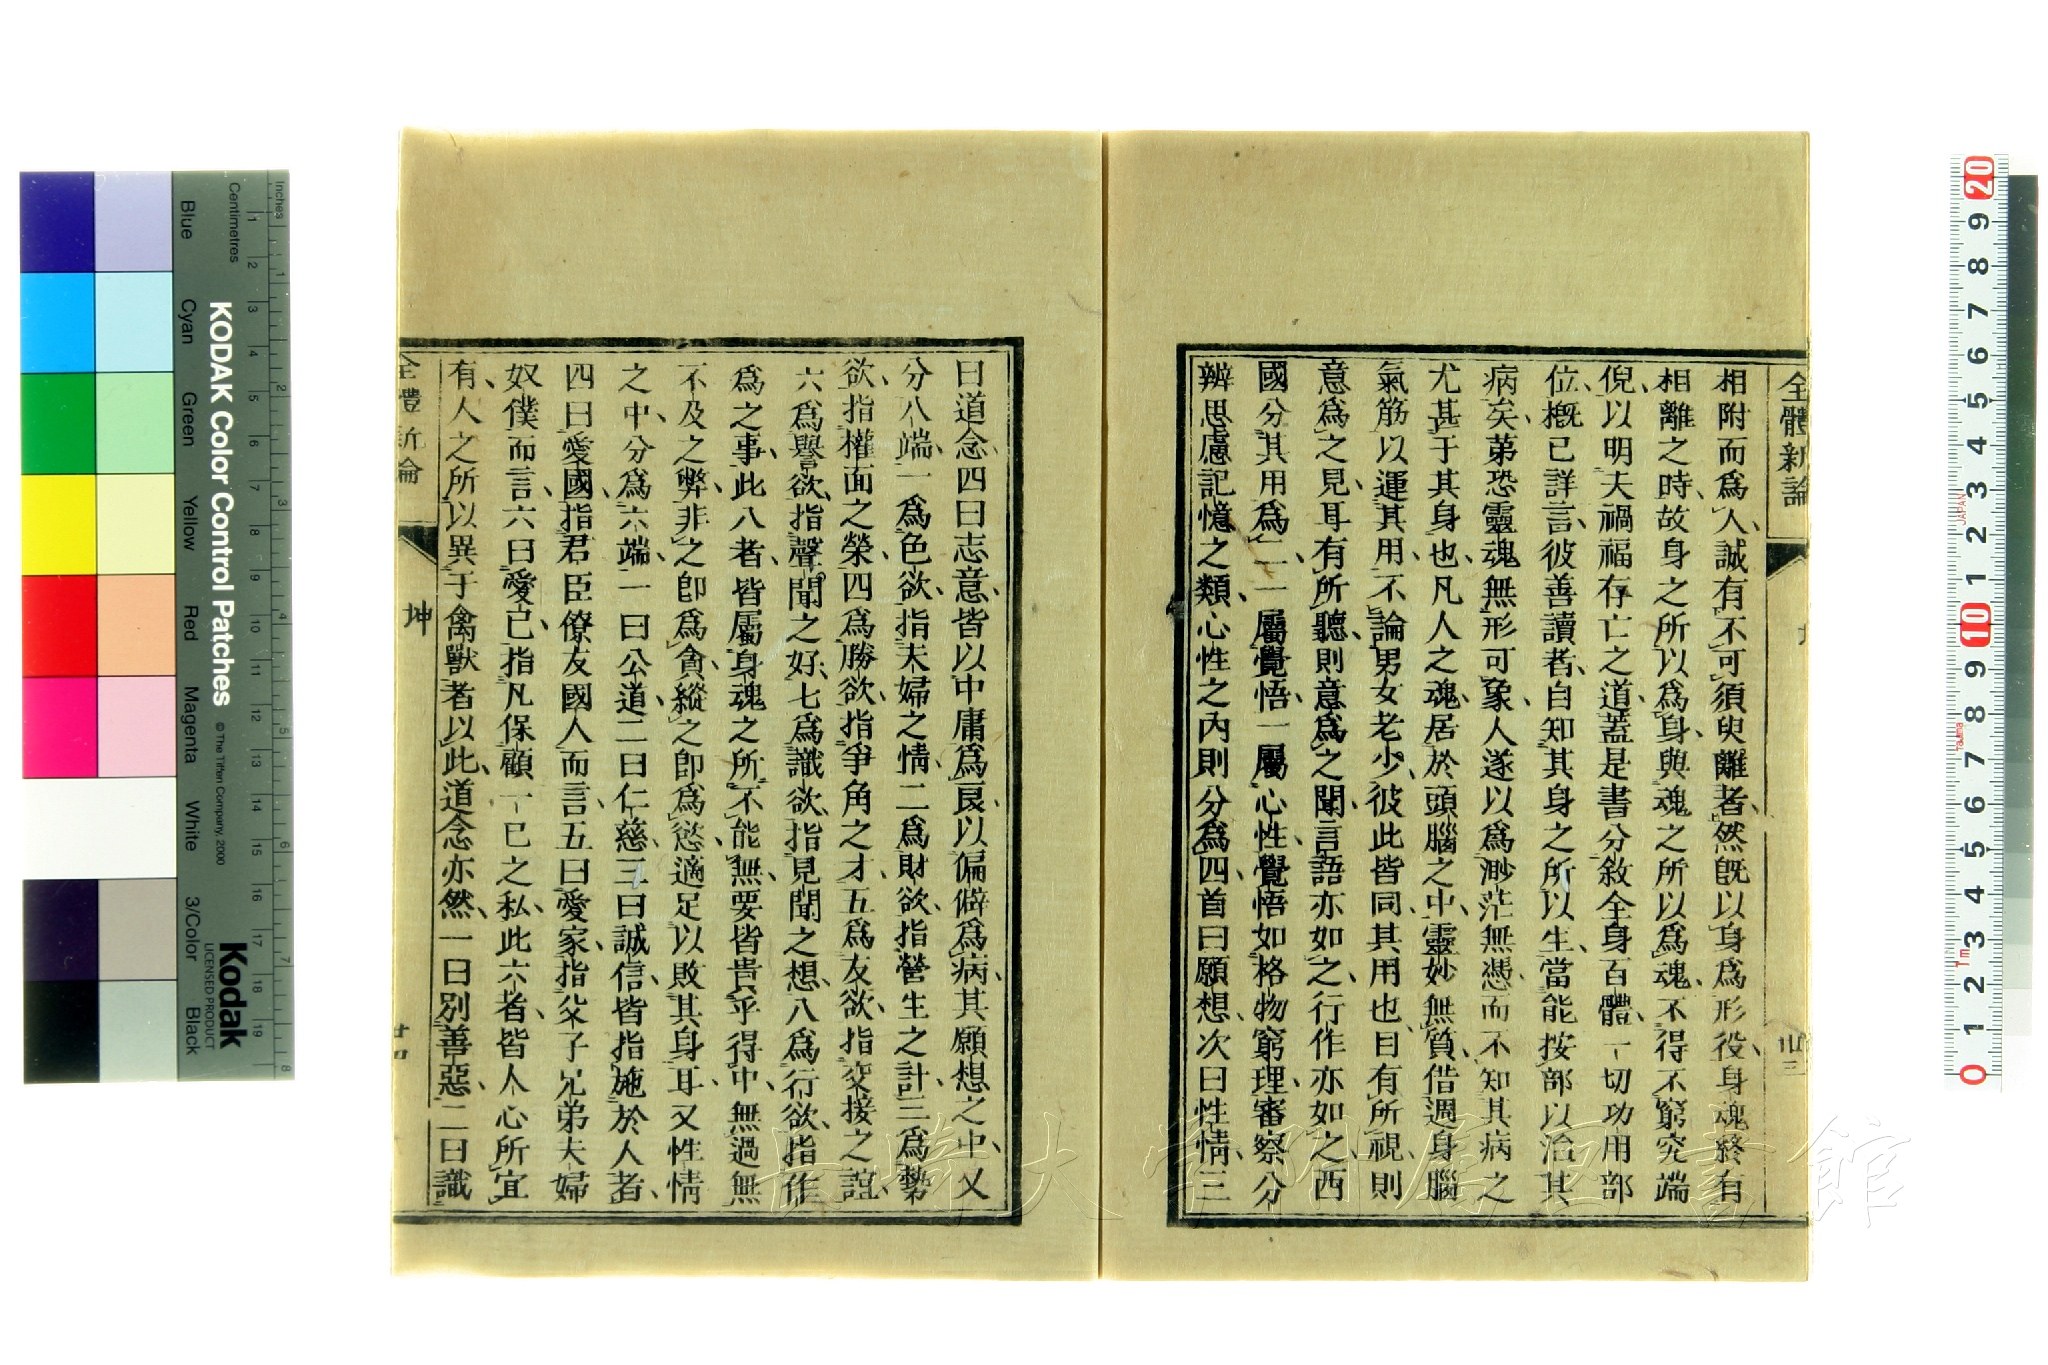 全體新論
相附而爲人誠有不可須臾離者然旣以身爲形役身魂終有
相離之時故身之所以爲身與魂之所以爲魂不得不窮究端
倪以明夫禍福存亡之道蓋是書分敘全身百體一切功用部
位概已詳言彼善讀者自知其身之所以生當能按部以治其
病矣第恐靈魂無形可象人遂以爲渺茫無憑而不知其病之
尤甚于其身也凡人之魂居於頭腦之中靈妙無質借週身腦
氣筋以運其用不論男女老少彼此皆同其用也目有所視則
意爲之見耳有所聽則意爲之聞言語亦如之行作亦如之西
國分其用爲二一屬覺悟一屬心性覺悟如格物窮理審察分
辨思慮記憶之類心性之內則分爲四首曰願想次曰性情三
曰道念四曰志意皆以中庸爲良以偏僻爲病其願想之中又
分八端一爲色欲指夫婦之情二爲財欲指營生之計三爲勢
欲指權面之榮四爲勝欲指爭角之才五爲友欲指交接之誼
六爲譽欲指聲聞之好七爲識欲指見聞之想八爲行欲指作
爲之事此八者皆屬身魂之所不能無要皆貴乎得中無過無
不及之弊非之卽爲貪縱之卽爲慾適足以敗其身耳又性情
之中分爲六端一曰公道二曰仁慈三曰誠信皆指施於人者
四曰愛國指君臣僚友國人而言五曰愛家指父子兄弟夫婦
奴僕而言六曰愛己指凡保顧一己之私此六者皆人心所宜
有人之所以異于禽獸者以此道念亦然一曰別善惡二曰識
全體新論
坤
廿四
KODAK Color Control Patches
© The Tiffen Company, 2000
Kodak
LICENSED PRODUCT
Inches
Centimetres
Blue
Cyan
Green
Yellow
Red
Magenta
White
3/Color
Black
1 2 3 4 5 6 7 8
1 2 3 4 5 6 7 8 9 10 11 12 13 14 15 16 17 18 19
20 9 8 7 6 5 4 3 2 1 10 9 8 7 6 5 4 3 2 1 0
JAPAN
1m
長崎大学附属図書館